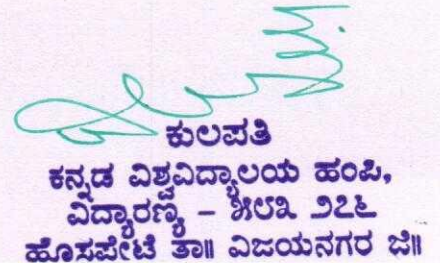 ಕುಲಪತಿ
ಕನ್ನಡ ವಿಶ್ವವಿದ್ಯಾಲಯ ಹಂಪಿ,
ವಿದ್ಯಾರಣ್ಯ – ೫೮೩ ೨೭೬
ಹೊಸಪೇಟೆ ತಾ॥ ವಿಜಯನಗರ ಜಿ॥